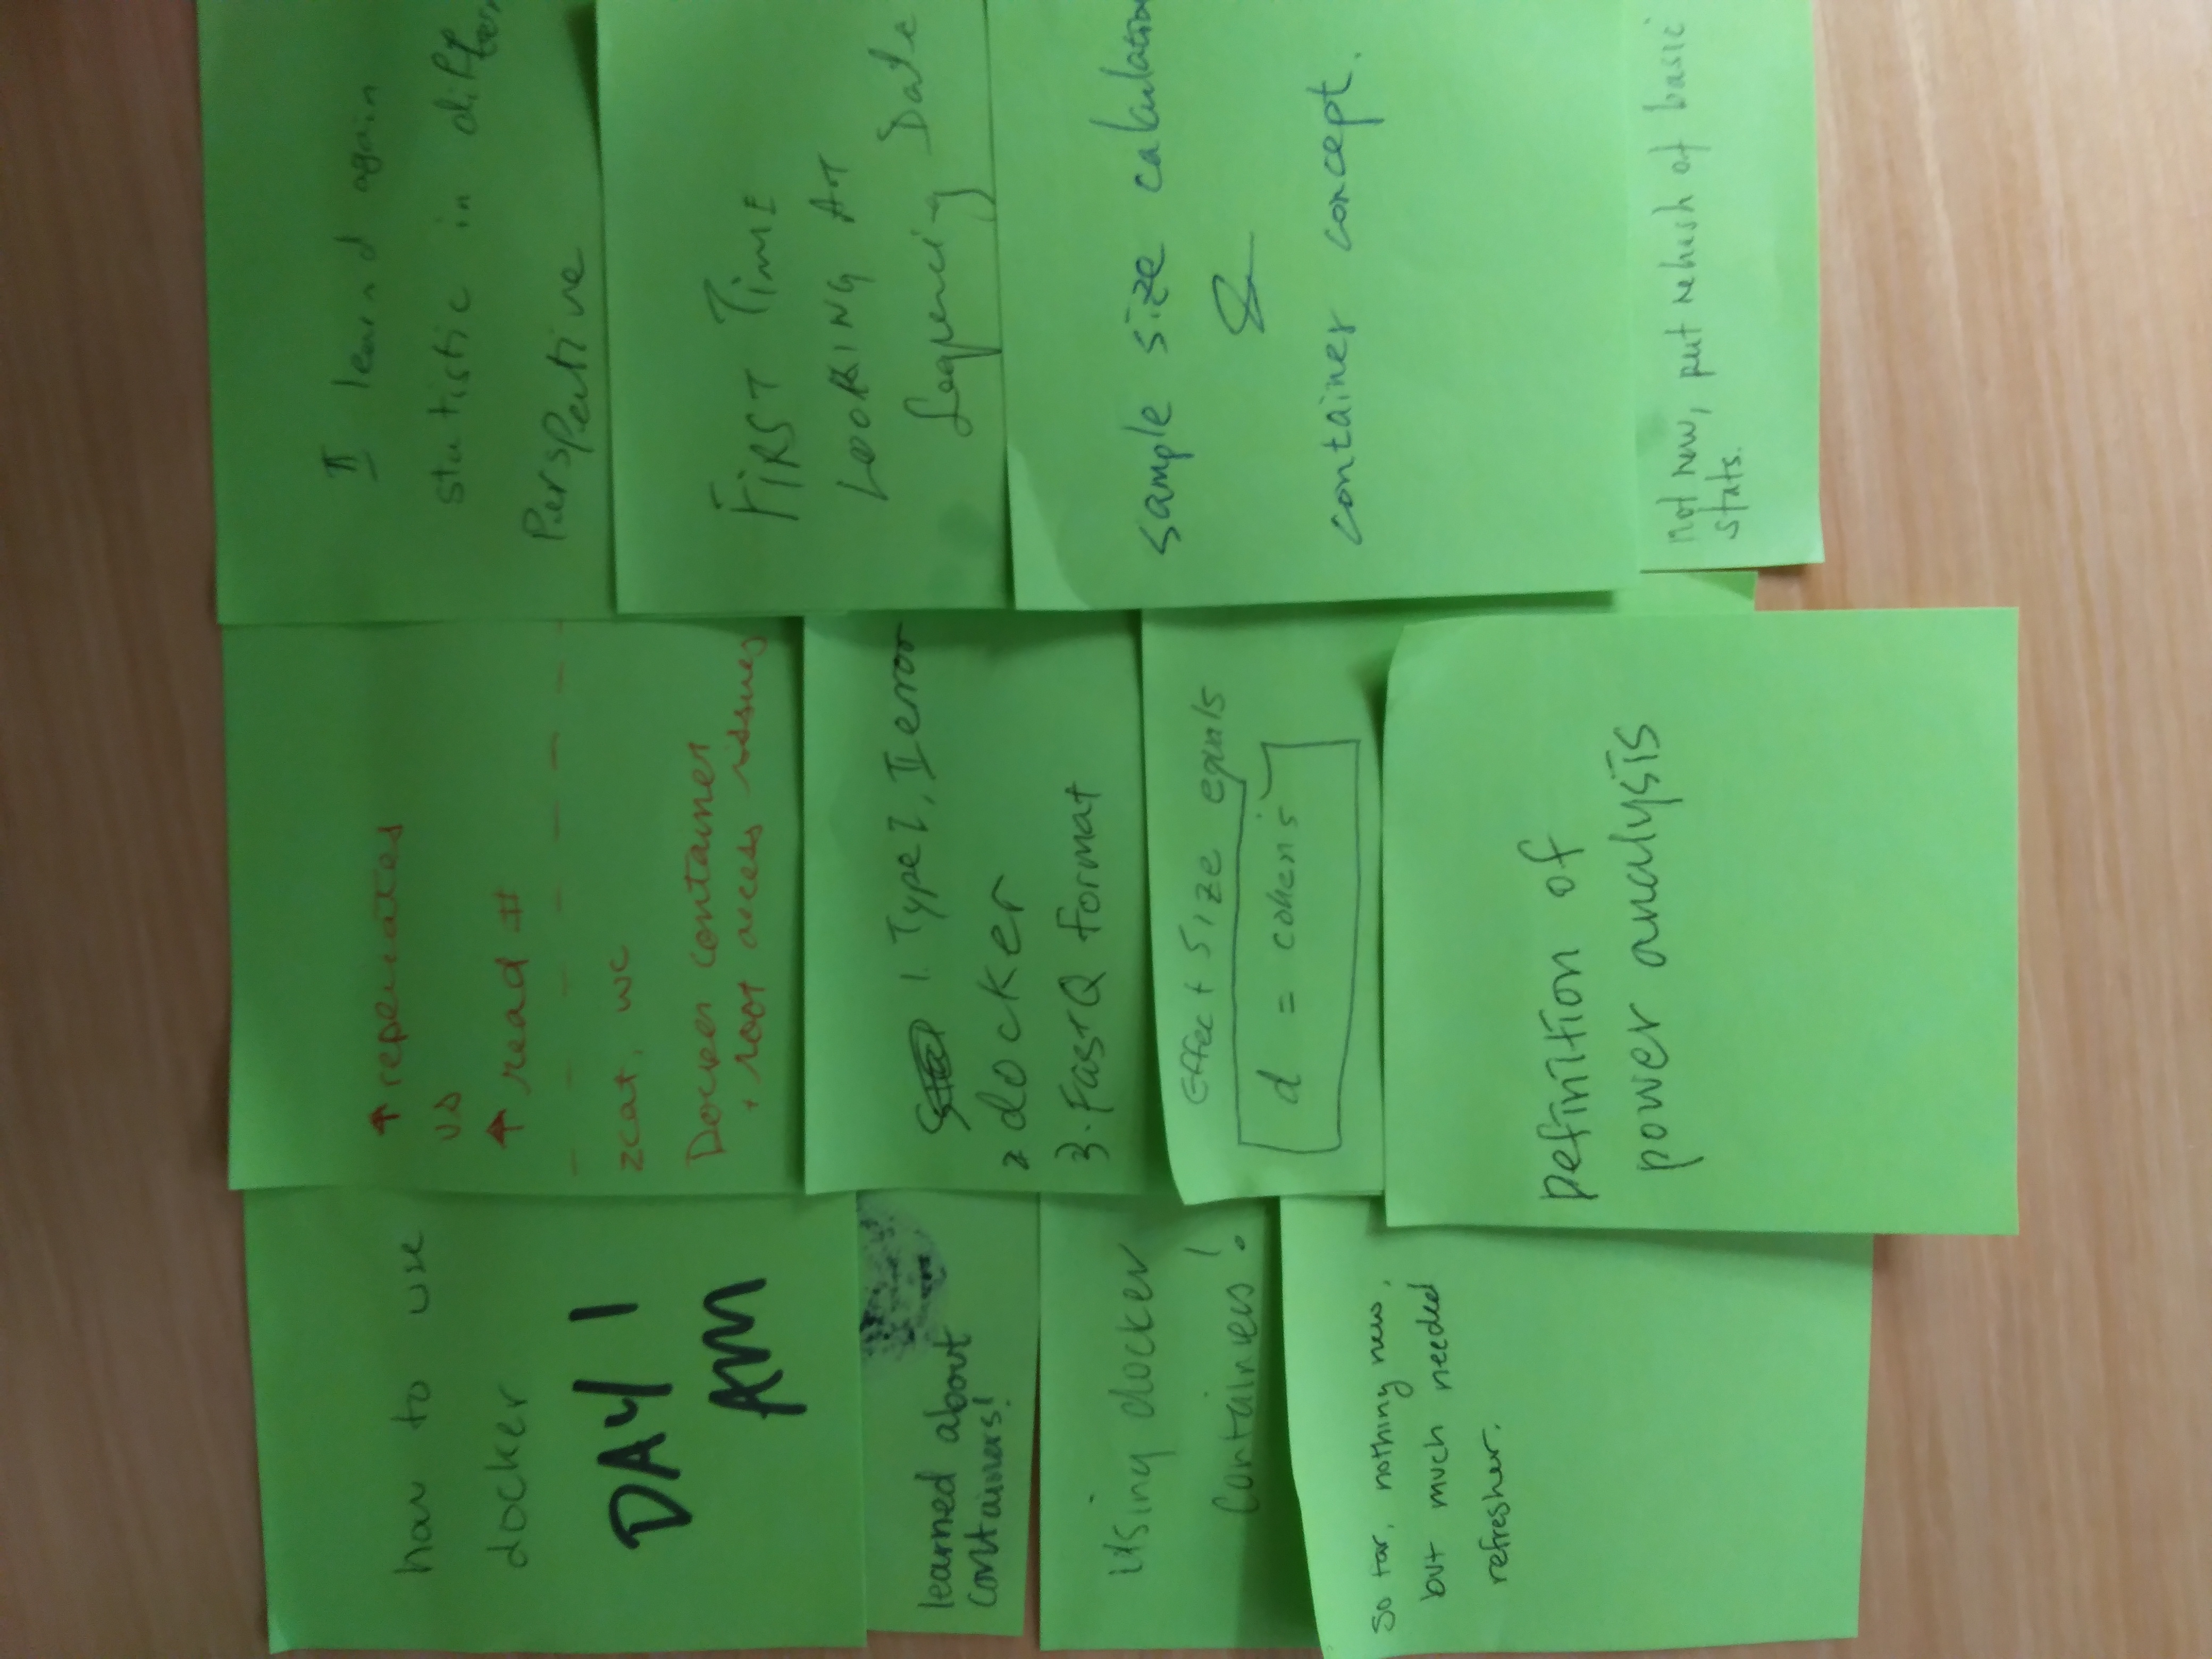 how to use
docker
DAY 1
AM
learned about
containers!
Using docker
Containers!
So far, nothing new,
but much needed
refresher.
↑ replicates
vs
↑ read #
zcat, wc
Docker container
+ root access issues
1. Type I, II error
2 docker
3. FastQ format
Effect size equals
d = cohen's
Definition of
power analysis
I learnd again
statistic in differn
Perspective
FIRST TIME
LOOKING AT
Sequencing Data
sample size calculation
&
container concept.
Not new, put rehash of basic
stats.